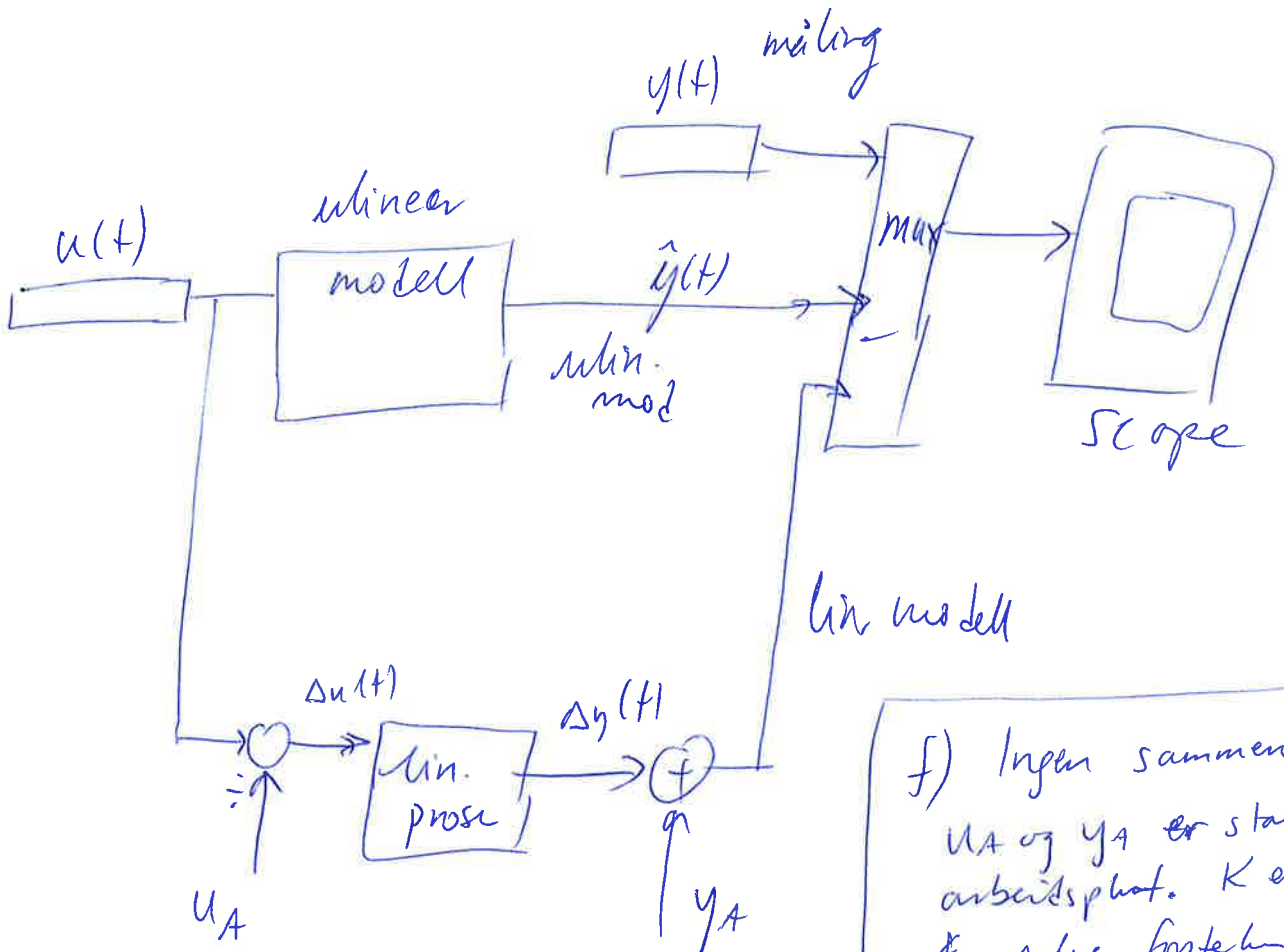 måling
y(t)
u(t)
ulinear
modell
ŷ(t)
ulin.
mod
mux
-
scope
lin modell
Δu(t)
Δy(t)
lin.
prose
+
u_A
y_A
f) Ingen sammen
u_A og y_A er sta
arbeidspkt. K e